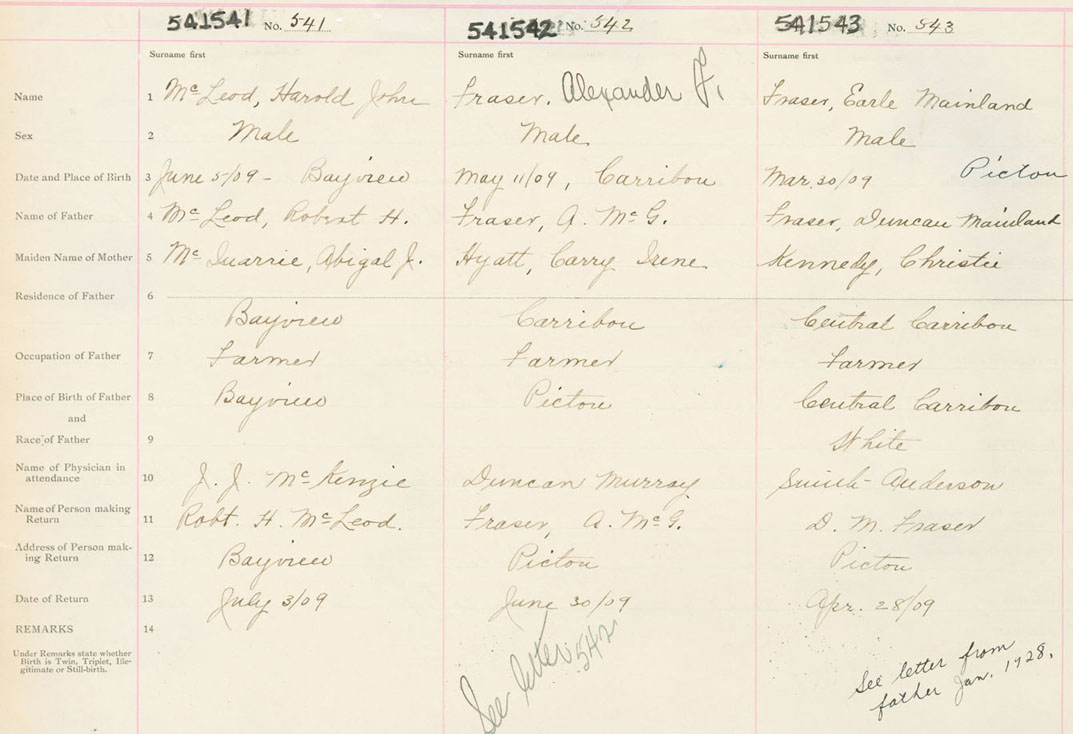 541541 No. 541 541542 No. 542 541543 No. 543
Surname first Surname first Surname first
Name 1 McLeod, Harold John Fraser, Alexander F. Fraser, Earle Mainland
Sex 2 Male Male Male
Date and Place of Birth 3 June 5/09 - Bayview May 11/09, Carribou Mar. 30/09 Pictou
Name of Father 4 McLeod, Robert H. Fraser, A. McG. Fraser, Duncan Mainland
Maiden Name of Mother 5 McQuarrie, Abigal J. Hyatt, Carry Irene Kennedy, Christie
Residence of Father 6
Bayview Carribou Central Carribou
Occupation of Father 7 Farmer Farmer Farmer
Place of Birth of Father 8 Bayview Pictou Central Carribou
and
Race of Father 9 White
Name of Physician in
attendance 10 J. J. McKenzie Duncan Murray Smith-Anderson
Name of Person making
Return 11 Robt. H. McLeod. Fraser, A. McG. D. M. Fraser
Address of Person mak-
ing Return 12 Bayview Pictou Pictou
Date of Return 13 July 3/09 June 30/09 Apr. 28/09
REMARKS 14
Under Remarks state whether
Birth is Twin, Triplet, Ille-
gitimate or Still-birth.
See letter 542
See letter from
father Jan. 1928.